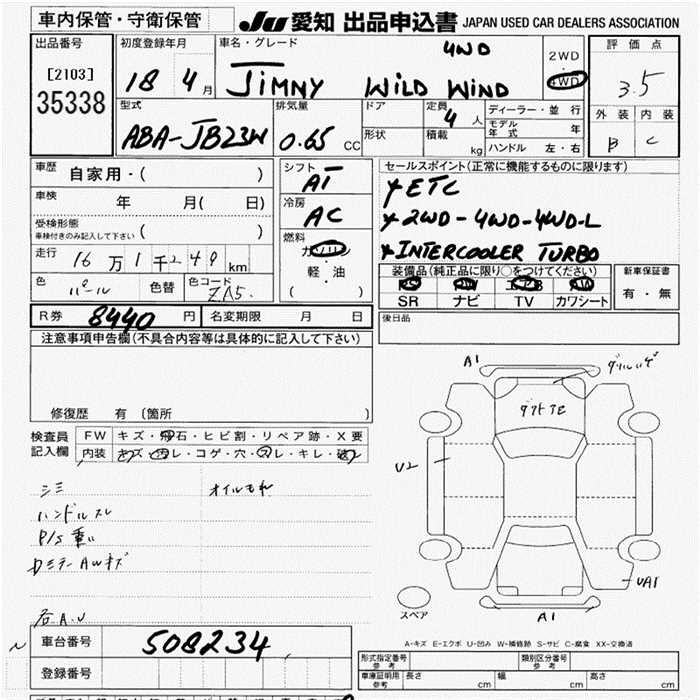 車内保管・守衛保管
JU 愛知 出品申込書 JAPAN USED CAR DEALERS ASSOCIATION
出品番号
[2103]
35338
初度登録年月
18 4 月
車名・グレード
4WD
JIMNY WILD WIND
2WD
・
4WD
評価点
3.5
外装 内装
B C
型式
ABA-JB23W
排気量
0.65 CC
ドア
形状
定員
4 人
積載
kg
ディーラー・並行
モデル年式 年
ハンドル 左・右
車歴
自家用・( )
車検 年 月( 日)
受検形態
車検付きのみ記入して下さい ( )
走行 16万1千249 km
色 パール 色替 色コード ZA5.
シフト
AT
冷房
AC
燃料
ガソリン
軽・油
( )
セールスポイント(正常に機能するものに限ります)
ETC
2WD-4WD-4WD-L
INTERCOOLER TURBO
装備品(純正品に限り○をつけてください)
PS PW エアB AW
SR ナビ TV カワシート
新車保証書
有・無
R券 8440 円 名変期限 月 日
後日品
注意事項申告欄(不具合内容等は具体的に記入して下さい)
修復歴 有 (箇所 )
検査員
記入欄
FW キズ・飛石・ヒビ割・リペア跡・X要
内装 キズ・汚レ・コゲ・穴・スレ・キレ・破レ
シミ オイルモレ
ハンドルスレ
P/S 重い
AWキズ
A1
A1
U2
UA1
スペア
車台番号 508234
登録番号
A-キズ E-エクボ U-凹み W-補修跡 S-サビ C-腐食 XX-交換済
形式指定番号
参考
類別区分番号
参考
車庫証明用
参考
長さ cm 幅 cm 高さ cm